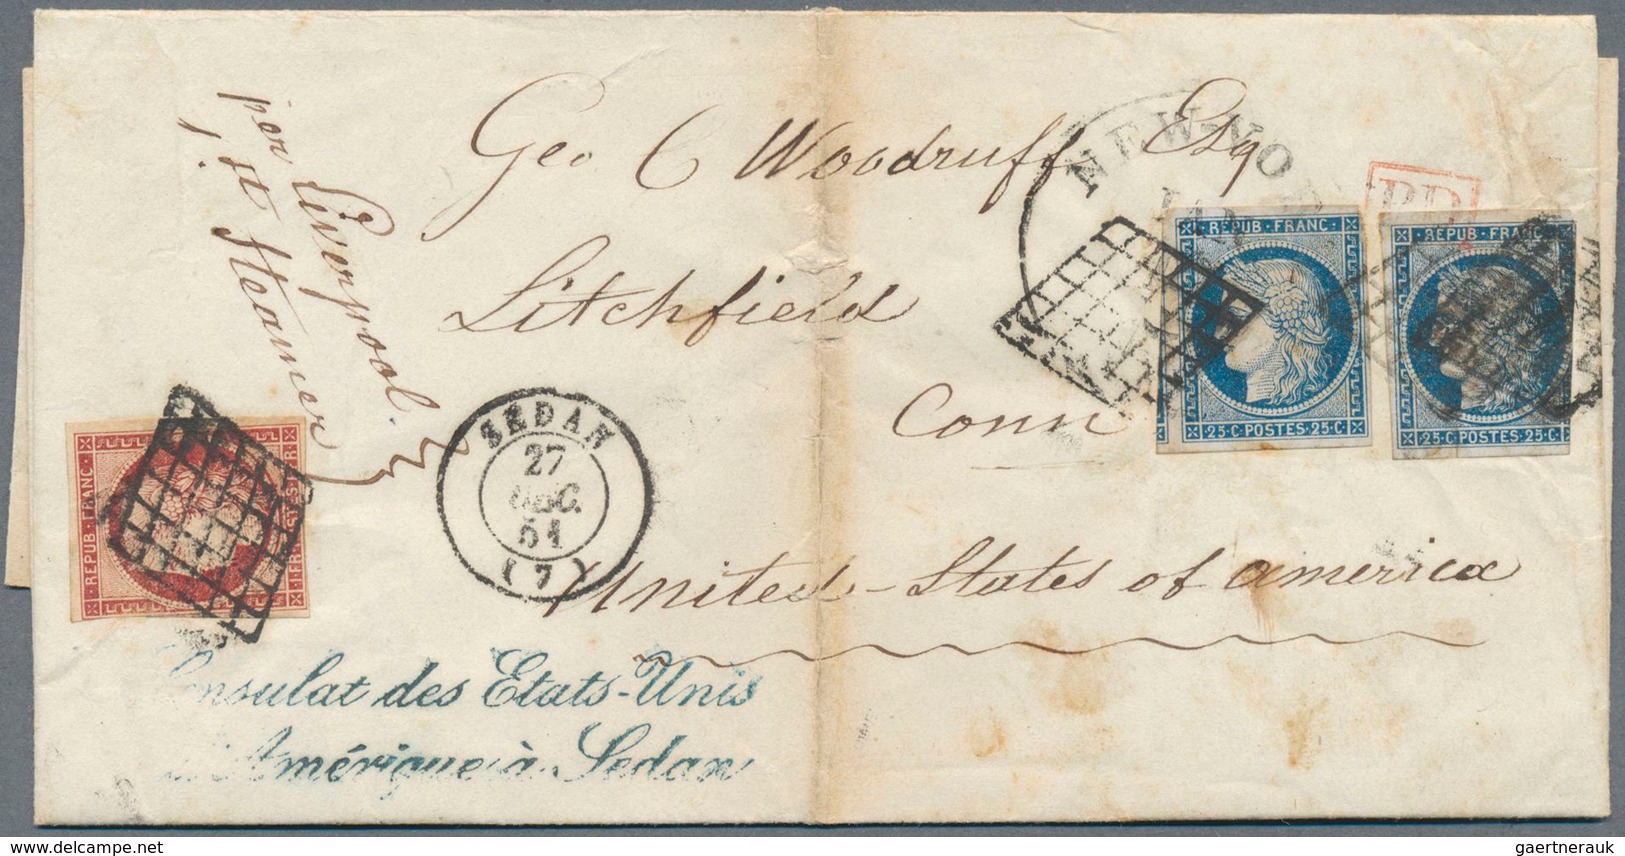 per Liverpool
1. st Steamer
Geo C Woodruff Esq
Litchfield
Conn
United-States of america
NEW-YO
JAN
PD
REPUB·FRANC·
25·C·POSTES·25·C·
REPUB·FRANC·
25·C·POSTES·25·C·
REPUB·FRANC·
SEDAN
27
DEC.
51
(7)
Consulat des Etats-Unis
d'Amérique à Sedan
gaertnerauk